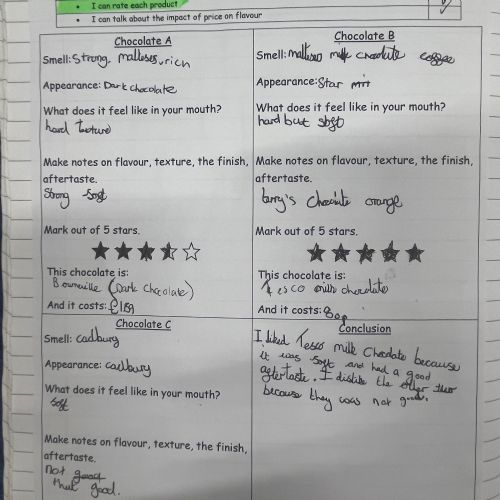 I can rate each product
I can talk about the impact of price on flavour
Chocolate A
Smell: Strong, malloses, rich
Appearance: Dark chocolate
What does it feel like in your mouth?
hard texture
Make notes on flavour, texture, the finish,
aftertaste.
Strong soft
Mark out of 5 stars.
This chocolate is:
Bournville (Dark Chocolate)
And it costs: £1.89
Chocolate B
Smell: milk chocolate
Appearance: Star
What does it feel like in your mouth?
hard but soft
Make notes on flavour, texture, the finish,
aftertaste.
terry's Chocolate orange
Mark out of 5 stars.
This chocolate is:
Tesco milk chocolate
And it costs: 80p
Chocolate C
Smell: cadbury
Appearance: cadbury
What does it feel like in your mouth?
soft
Make notes on flavour, texture, the finish,
aftertaste.
not good
that good.
Conclusion
I liked Tesco milk Chocolate because
it was soft and had a good
aftertaste. I dislike the other two
because they was not good.